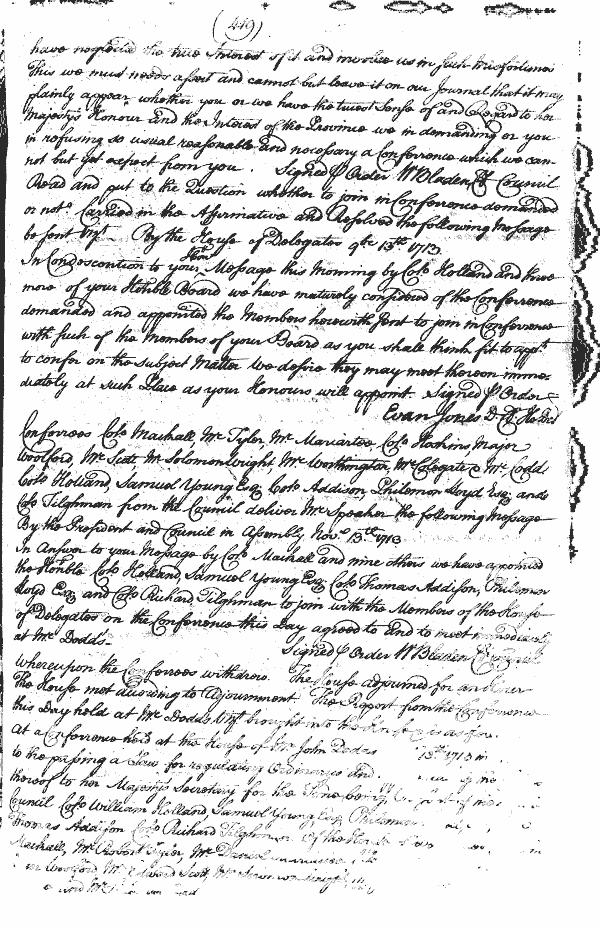 (449)
have neglected the true Interest of it and involve us in such misfortunes
This we must needs assert and cannot but leave it on our Journal that it may
plainly appear whether you or we have the truest Sense of and Regard to her
Majestys Honour and the Interest of the Province we in demanding or you
in refusing so usual reasonable and necessary a Conferrence which we can=
not but yet expect from you. Signed ⅌ Order W Bladen Cl Council
Read and put to the Question whether to join in Conferrence demanded
or not. Carried in the Affirmative and Resolved the following Message
be sent Vizt. By the House of Delegates 9br 13th 1713
In Condescention to your Message this Morning by Colo Holland and three
more of your Honble Board we have maturely considered of the Conferrence
demanded and appointed the Members herewith sent to join in Conferrence
with such of the Members of your Board as you shall think fit to appt
to confer on the subject Matter we desire they may meet thereon imme=
diately at such Place as your Honours will appoint. Signed ⅌ Order
Evan Jones D. Cl Ho Del
Conferrees Colo Mackall, Mr Tyler, Mr Mariartee Colo Hoskins, Major
Woolford, Mr Scott, Mr Solomon Wright, Mr Worthington, Mr Colegate & Mr Codd
Colo Holland, Samuel Young Esq Colo Addison Philemon Lloyd Esq and
Colo Tilghman from the Council deliver Mr Speaker the following Message
By the President and Council in Assembly Novr 13th 1713
In Answer to your Message by Colo Mackall and nine others we have appointed
the Honble Colo Holland, Samuel Young Esq Colo Thomas Addison, Philemon
Lloyd Esq and Colo Richard Tilghman to join with the Members of the House
of Delegates on the Conferrence this Day agreed to and to meet immediately
at Mr Dodds. Signed ⅌ Order W Bladen Cl Council
Whereupon the Conferrees withdrew. The House adjourned for an Hour
The House met according to Adjournment. The Report from the Conferrence
this Day held at Mr Dodds Vizt brought into the House
At a Conferrence held at the House of Mr John Dodds 13th 1713 in
to the passing a Law for regulating Ordinarys and
thereof to her Majestys Secretary for the Time being
Council Colo William Holland, Samuel Young Esq Philemon
Thomas Addison Colo Richard Tilghman Of the House
Mackall, Mr Robert Tyler, Mr Daniel Mariartee
Woolford Mr Edward Scott, Mr
and Mr